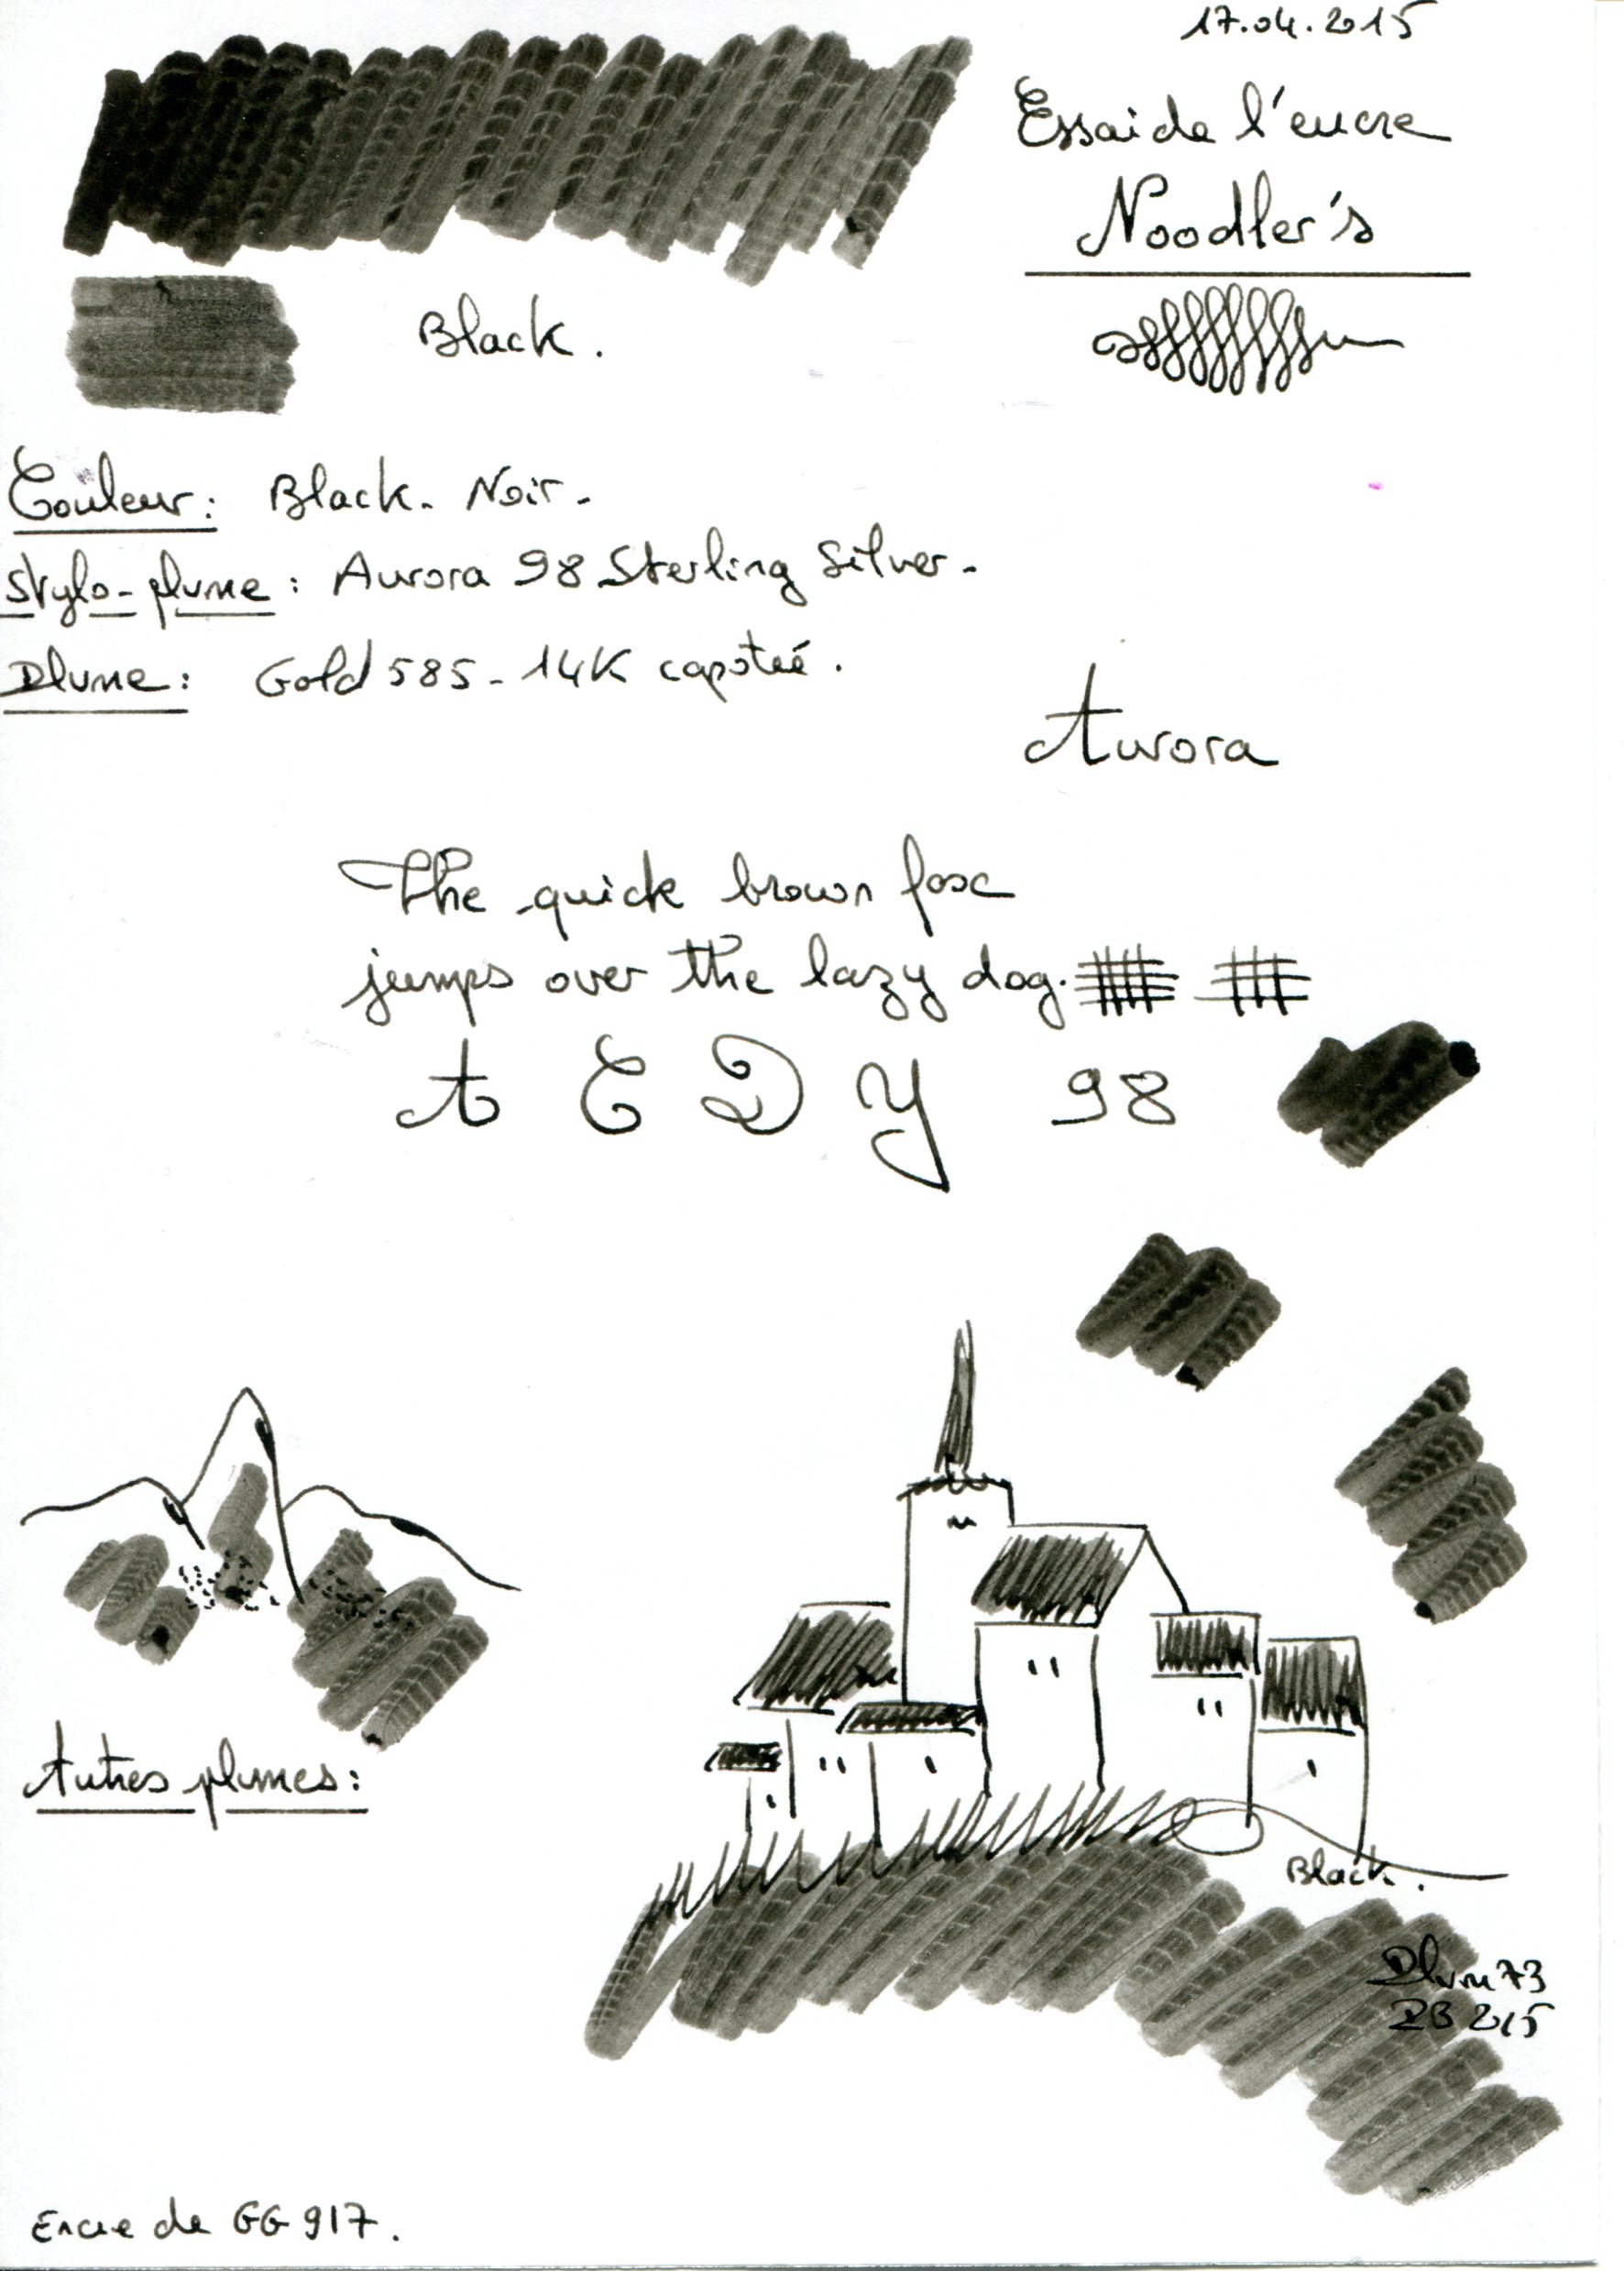 17.04.2015
Essai de l'encre
Noodler's
Black.
Couleur: Black. Noir.
Stylo-plume: Aurora 98 Sterling Silver.
Plume: Gold 585 - 14K capotée.
Aurora
The quick brown fox
jumps over the lazy dog.
A E D Y 98
Autres plumes:
Black.
Plume73
PB 2015
Encre de GG 917.